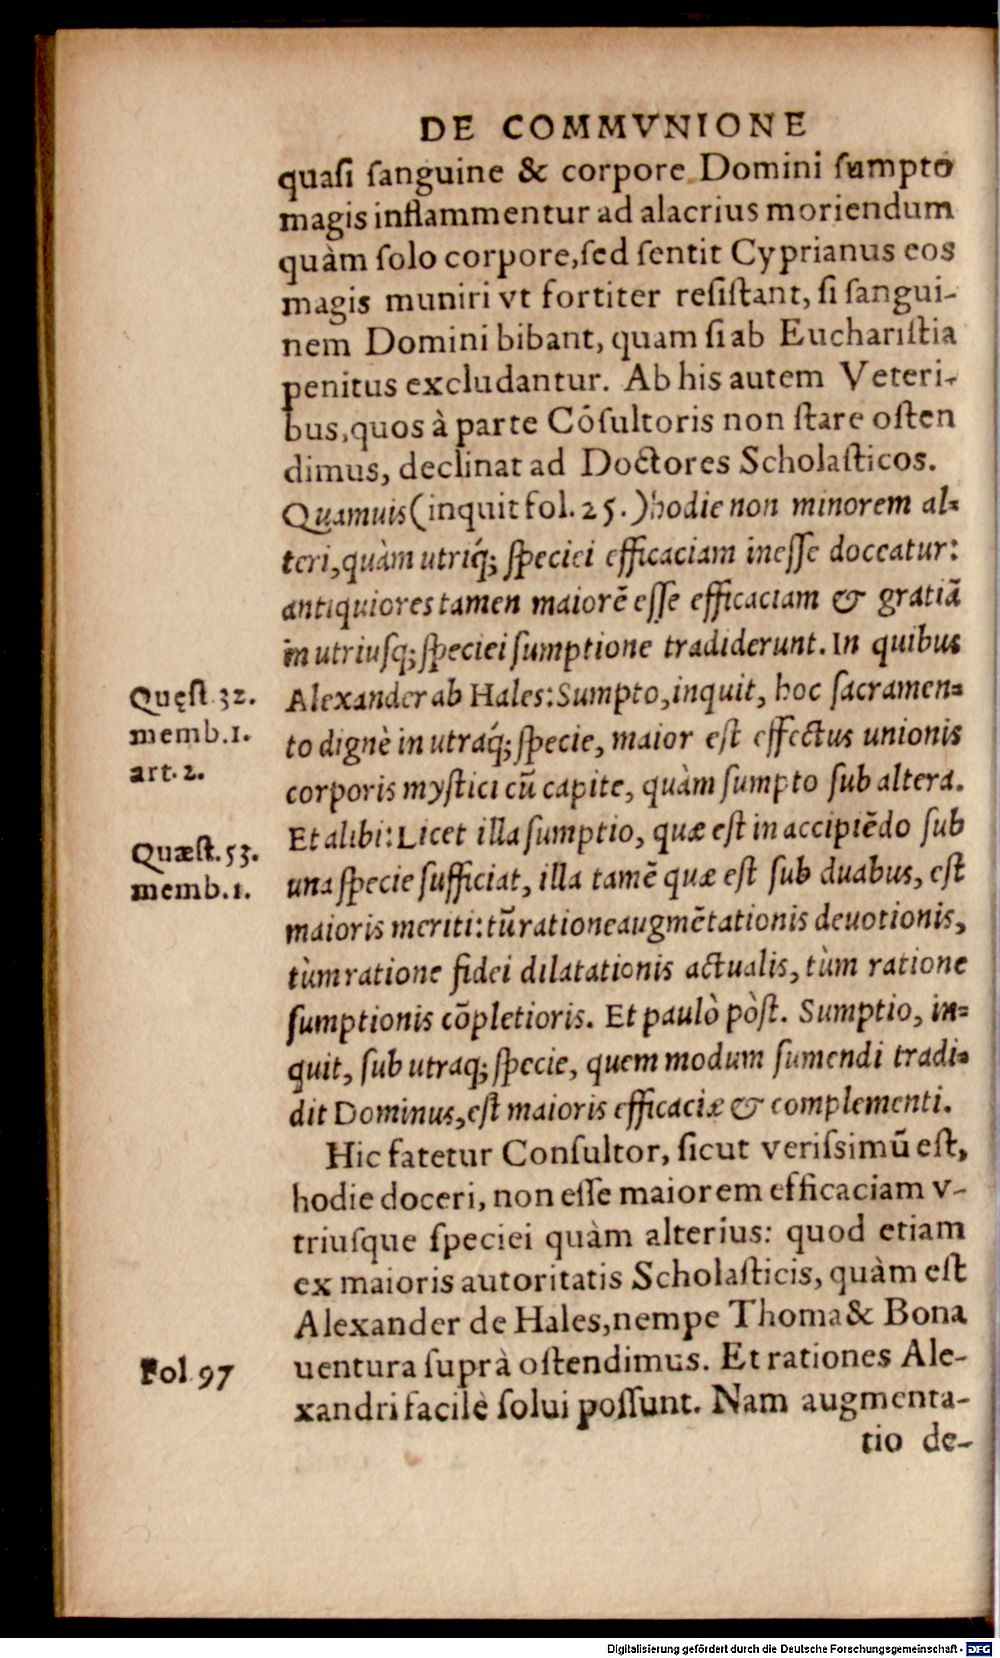 DE COMMVNIONE
quasi sanguine & corpore Domini sumpto
magis inflammentur ad alacrius moriendum
quàm solo corpore, sed sentit Cyprianus eos
magis muniri vt fortiter resistant, si sangui-
nem Domini bibant, quam si ab Eucharistia
penitus excludantur. Ab his autem Veteri-
bus, quos à parte Cōsultoris non stare osten
dimus, declinat ad Doctores Scholasticos.
Quamuis (inquit fol. 25.) hodie non minorem al-
teri, quàm utriq́; speciei efficaciam inesse doceatur:
antiquiores tamen maiorē esse efficaciam & gratiā
in utriusq; speciei sumptione tradiderunt. In quibus
Quęst. 32.
memb. 1.
art. 2.
Alexander ab Hales: Sumpto, inquit, hoc sacramen-
to dignè in utraq́; specie, maior est effectus unionis
corporis mystici cū capite, quàm sumpto sub altera.
Quæst. 53.
memb. 1.
Et alibi: Licet illa sumptio, quæ est in accipiēdo sub
una specie sufficiat, illa tamē quæ est sub duabus, est
maioris meriti: tū ratione augmētationis deuotionis,
tùm ratione fidei dilatationis actualis, tùm ratione
sumptionis cōpletioris. Et paulò pòst. Sumptio, in-
quit, sub utraq; specie, quem modum sumendi tradi-
dit Dominus, est maioris efficaciæ & complementi.
Hic fatetur Consultor, sicut verissimū est,
hodie doceri, non esse maiorem efficaciam v-
triusque speciei quàm alterius: quod etiam
ex maioris autoritatis Scholasticis, quàm est
Alexander de Hales, nempe Thoma & Bona
Fol. 97
uentura suprà ostendimus. Et rationes Ale-
xandri facilè solui possunt. Nam augmenta-
tio de-
Digitalisierung gefördert durch die Deutsche Forschungsgemeinschaft - DFG